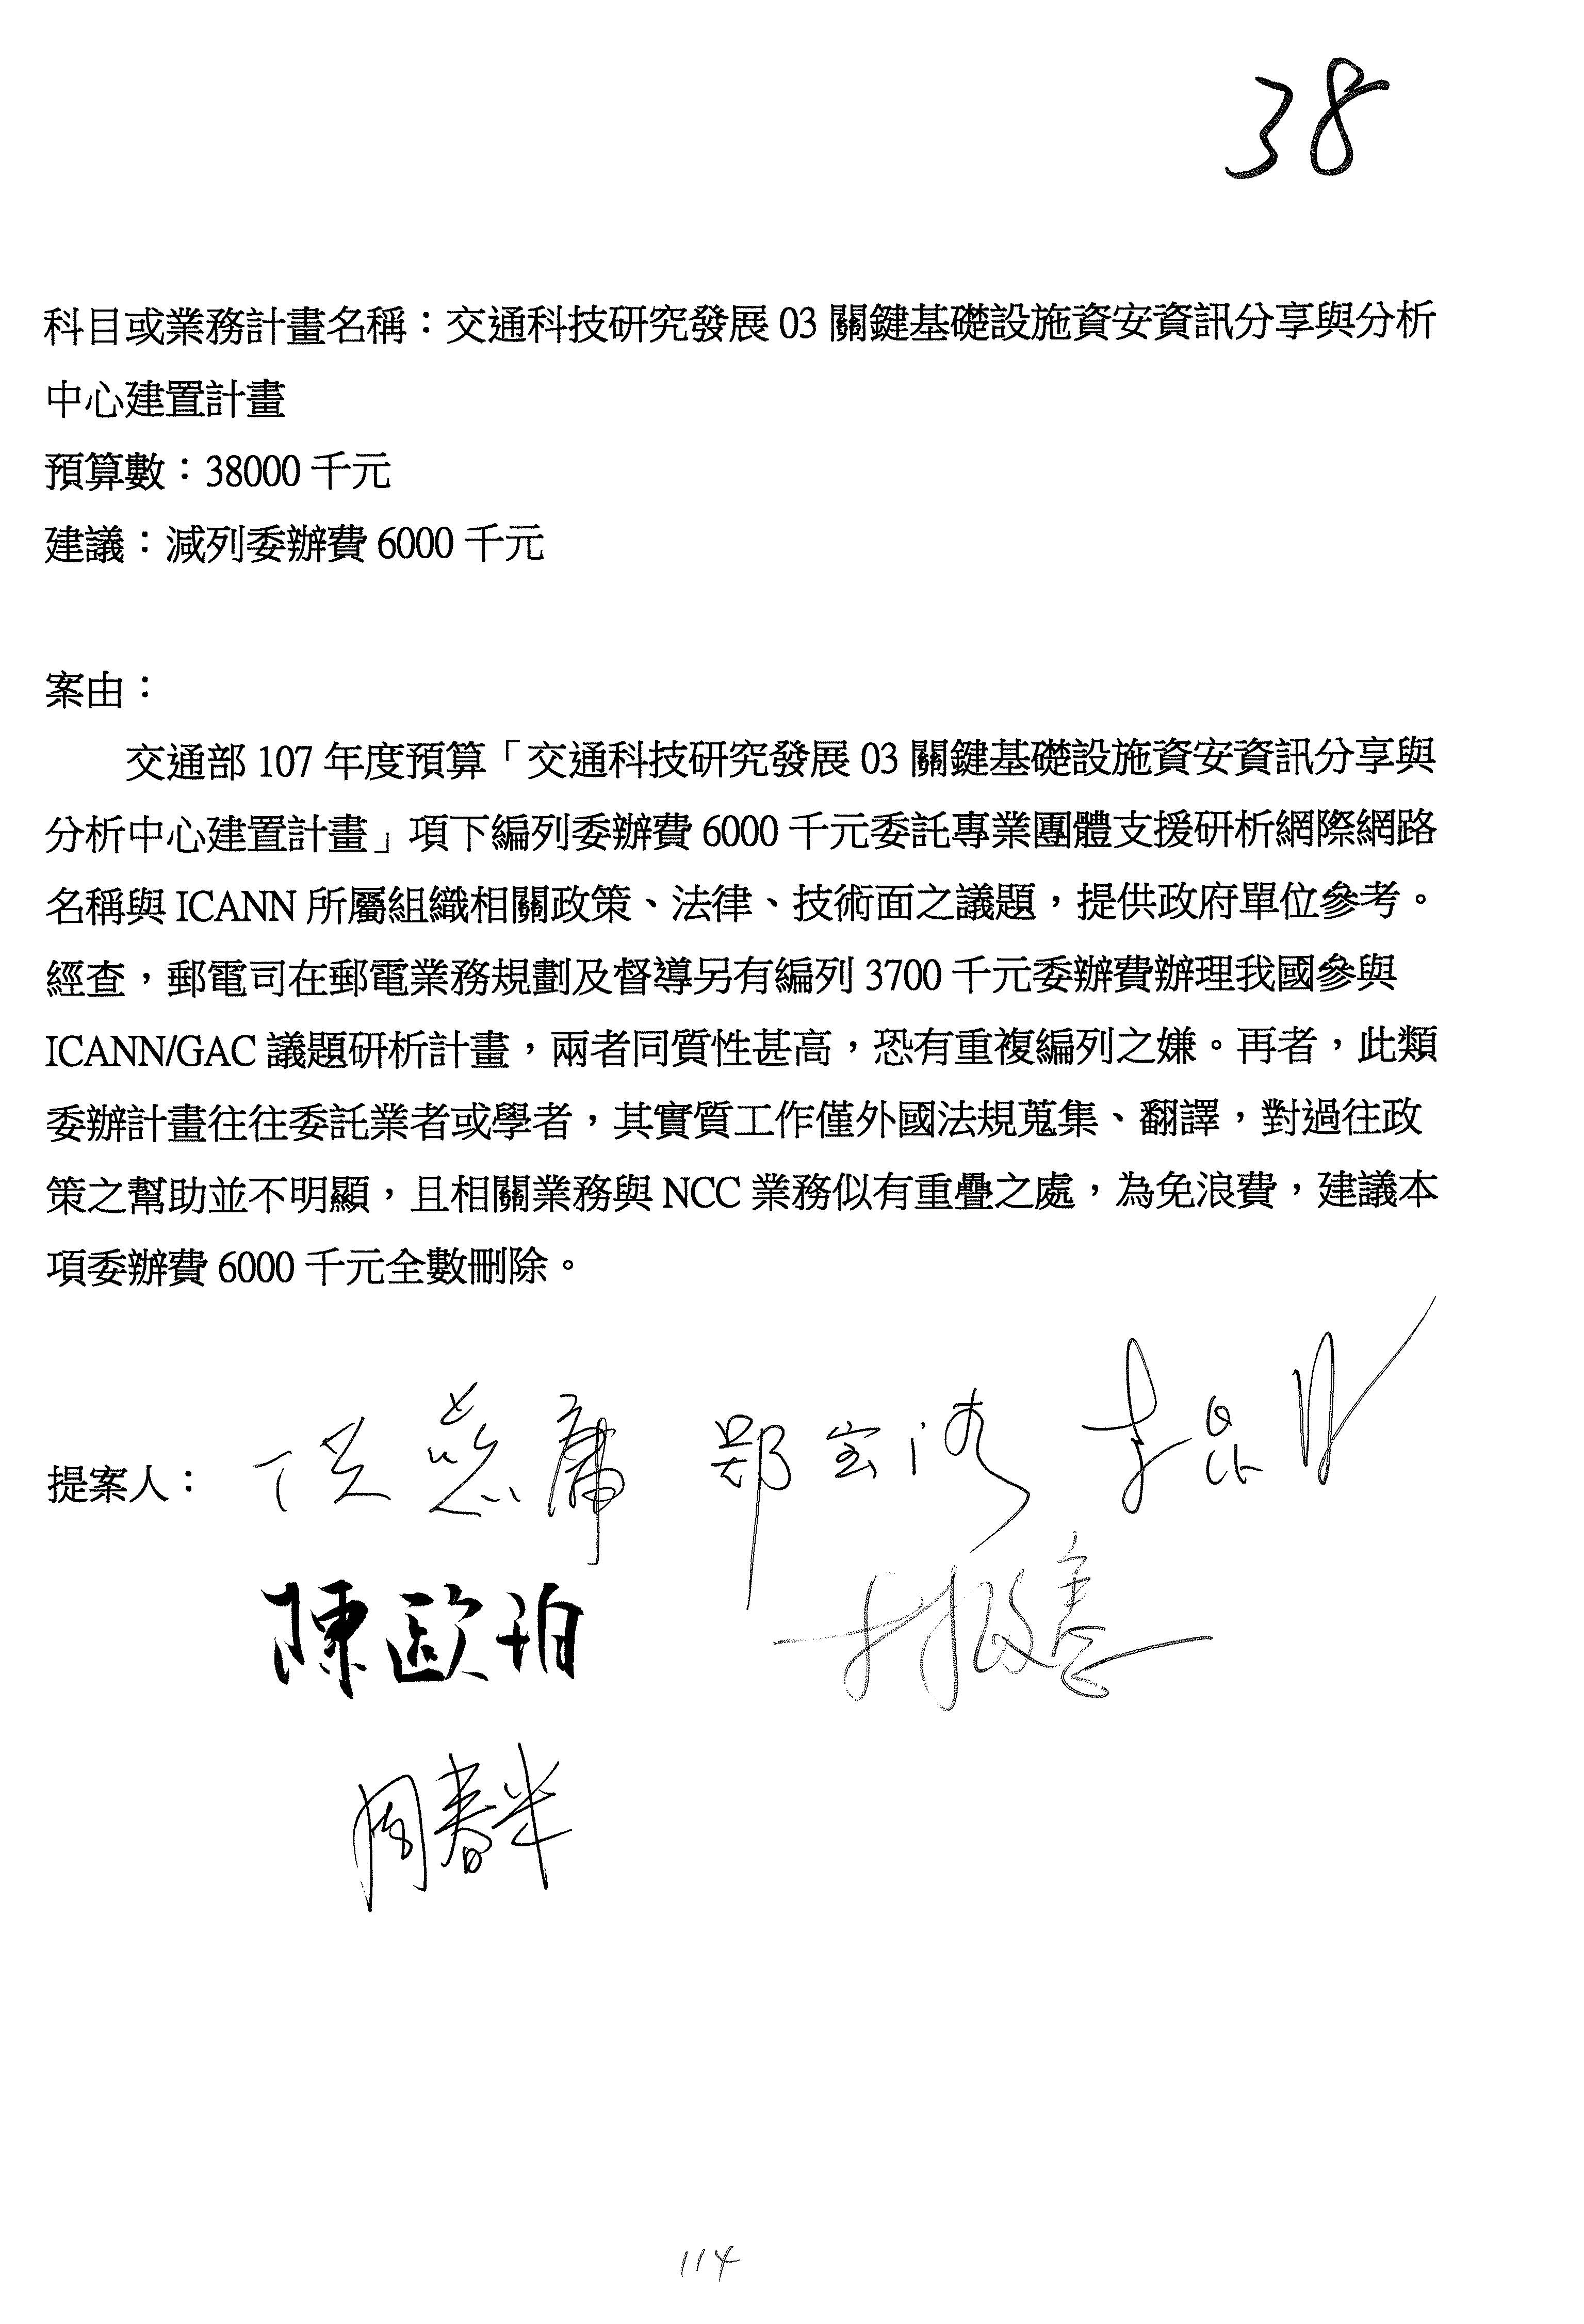 38
科目或業務計畫名稱：交通科技研究發展 03 關鍵基礎設施資安資訊分享與分析
中心建置計畫
預算數：38000 千元
建議：減列委辦費 6000 千元
案由：
交通部 107 年度預算「交通科技研究發展 03 關鍵基礎設施資安資訊分享與
分析中心建置計畫」項下編列委辦費 6000 千元委託專業團體支援研析網際網路
名稱與 ICANN 所屬組織相關政策、法律、技術面之議題，提供政府單位參考。
經查，郵電司在郵電業務規劃及督導另有編列 3700 千元委辦費辦理我國參與
ICANN/GAC 議題研析計畫，兩者同質性甚高，恐有重複編列之嫌。再者，此類
委辦計畫往往委託業者或學者，其實質工作僅外國法規蒐集、翻譯，對過往政
策之幫助並不明顯，且相關業務與 NCC 業務似有重疊之處，為免浪費，建議本
項委辦費 6000 千元全數刪除。
提案人： 鄭宝清 李昆
陳歐珀
周春米
114